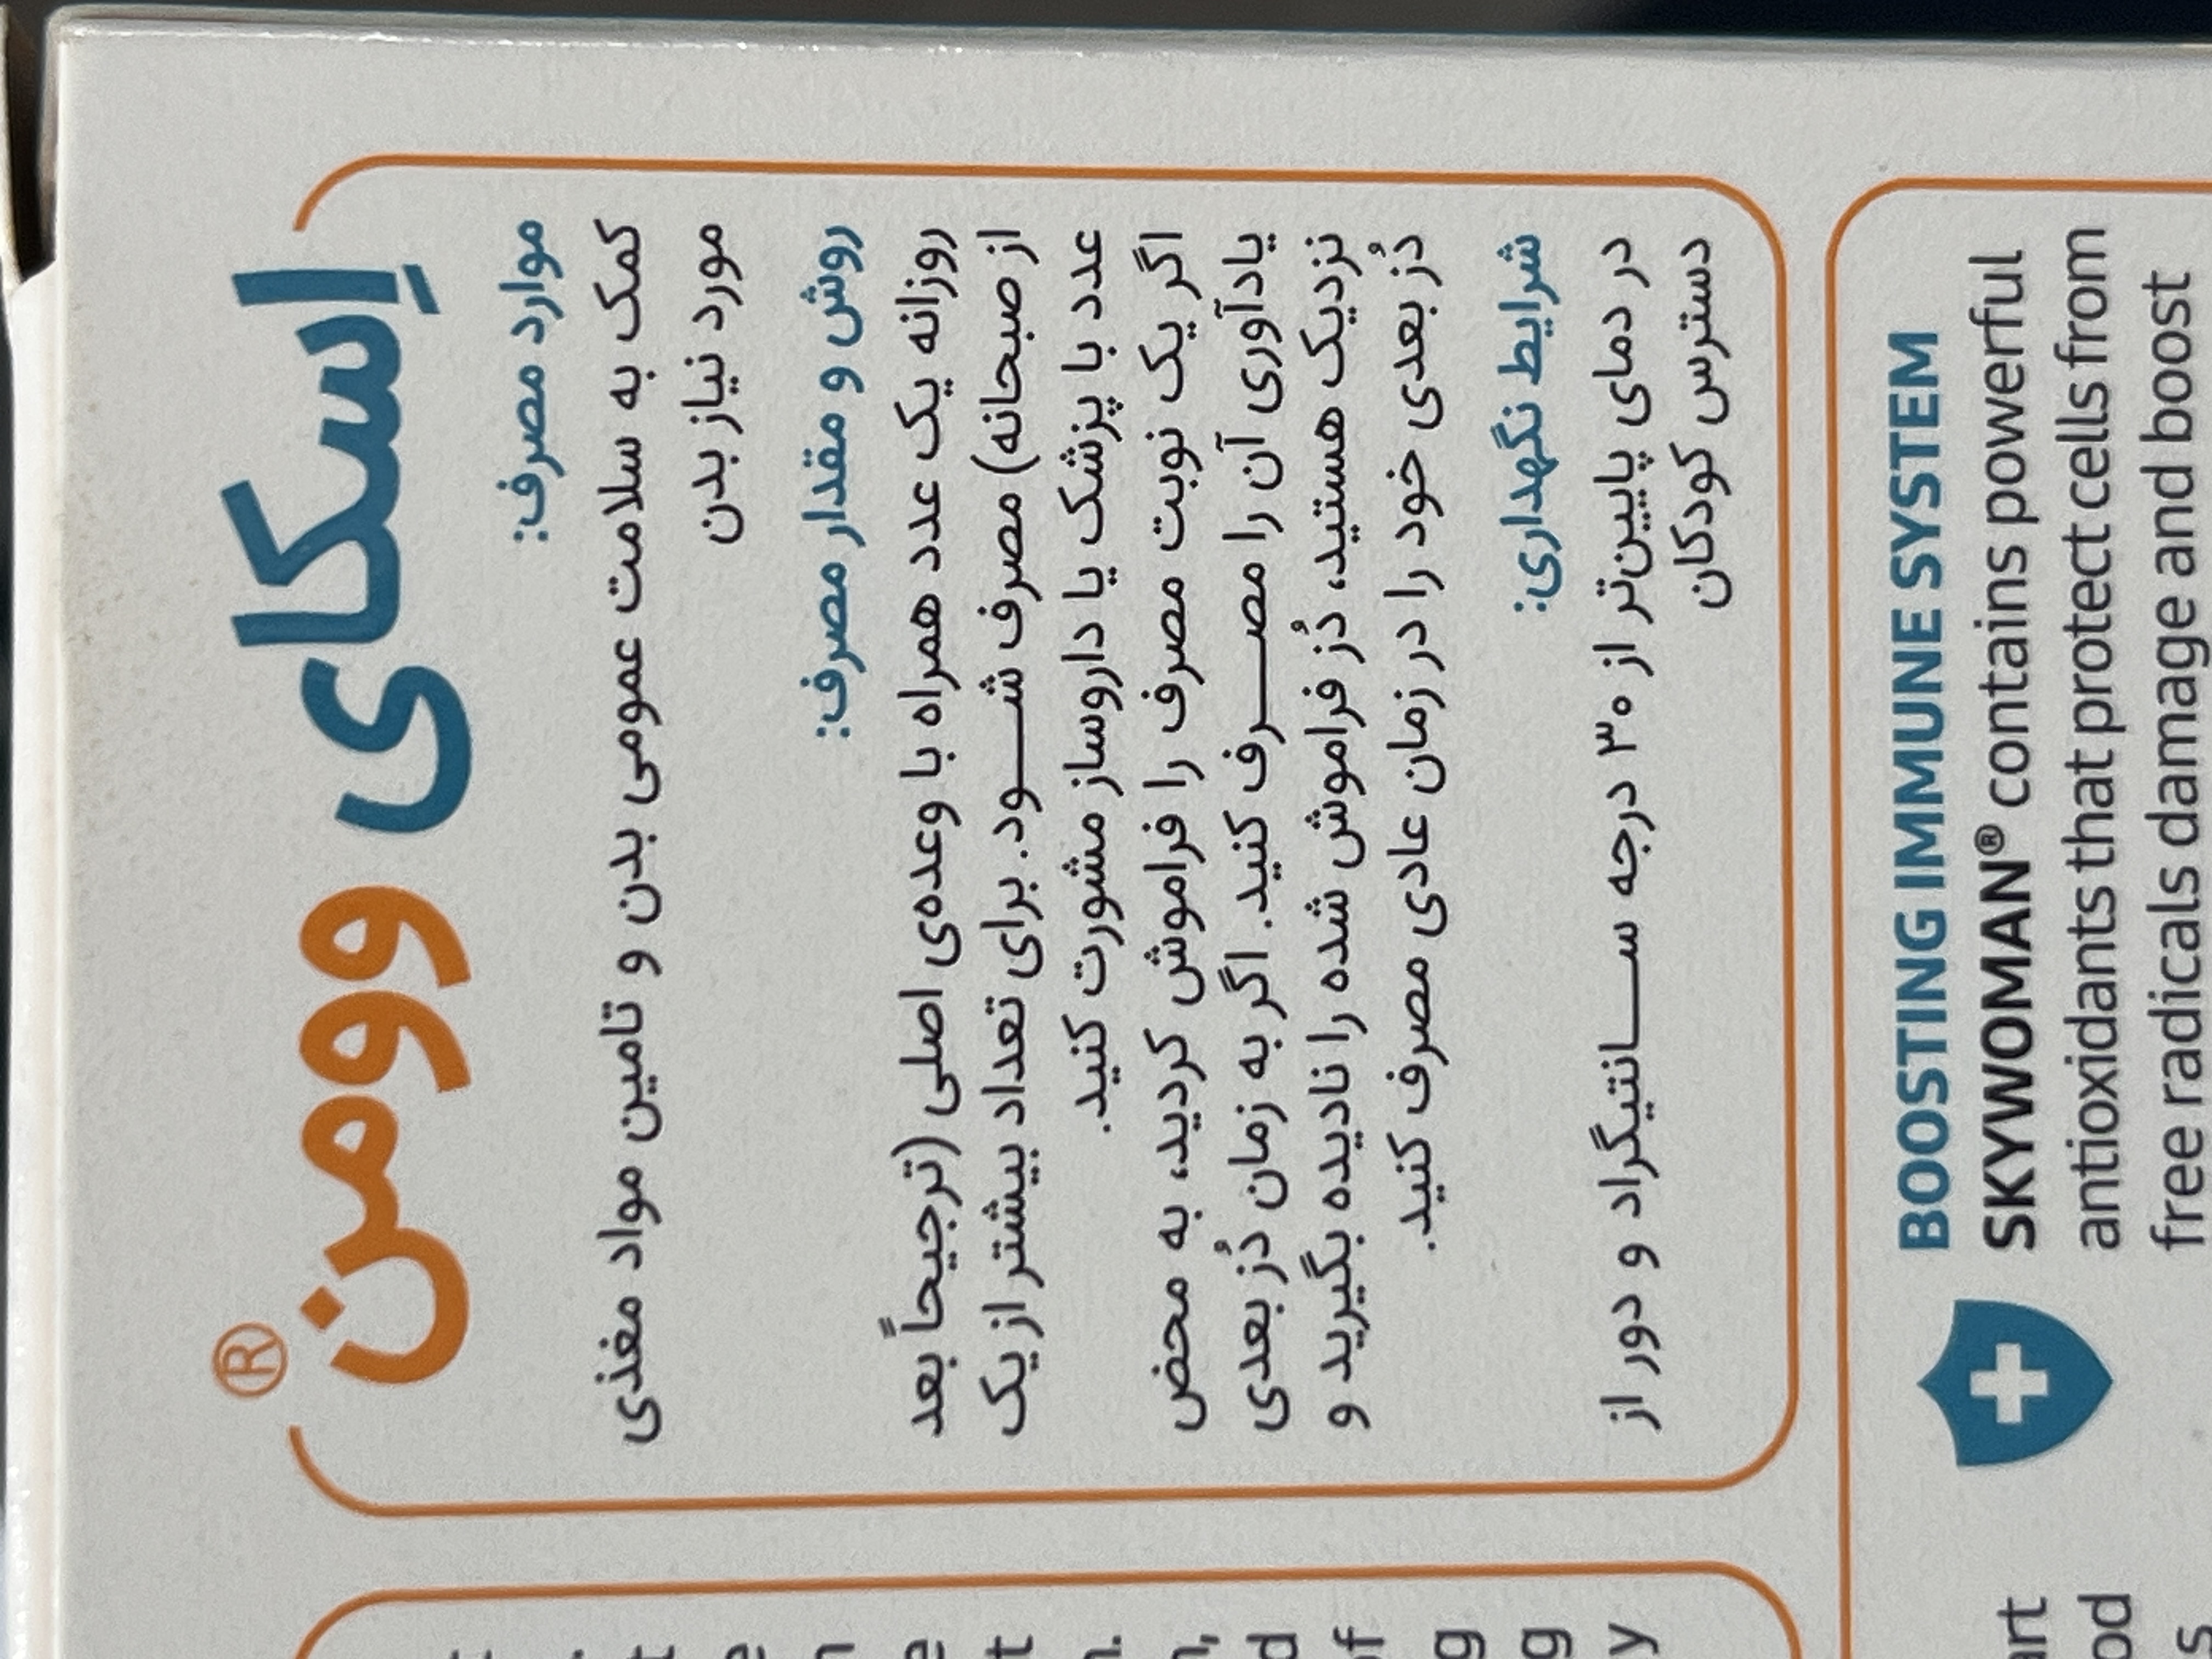 اِسکای وومن®
موارد مصرف:
کمک به سلامت عمومی بدن و تامین مواد مغذی
مورد نیاز بدن
روش و مقدار مصرف:
روزانه یک عدد همراه با وعده‌ی اصلی (ترجیحاً بعد
از صبحانه) مصرف شـــود. برای تعداد بیشتر از یک
عدد با پزشک یا داروساز مشورت کنید.
اگر یک نوبت مصرف را فراموش کردید، به محض
یادآوری آن را مصـــرف کنید. اگر به زمان دُز بعدی
نزدیک هستید، دُز فراموش شده را نادیده بگیرید و
دُز بعدی خود را در زمان عادی مصرف کنید.
شرایط نگهداری:
در دمای پایین‌تر از ۳۰ درجه ســـانتیگراد و دور از
دسترس کودکان
BOOSTING IMMUNE SYSTEM
SKYWOMAN® contains powerful
antioxidants that protect cells from
free radicals damage and boost